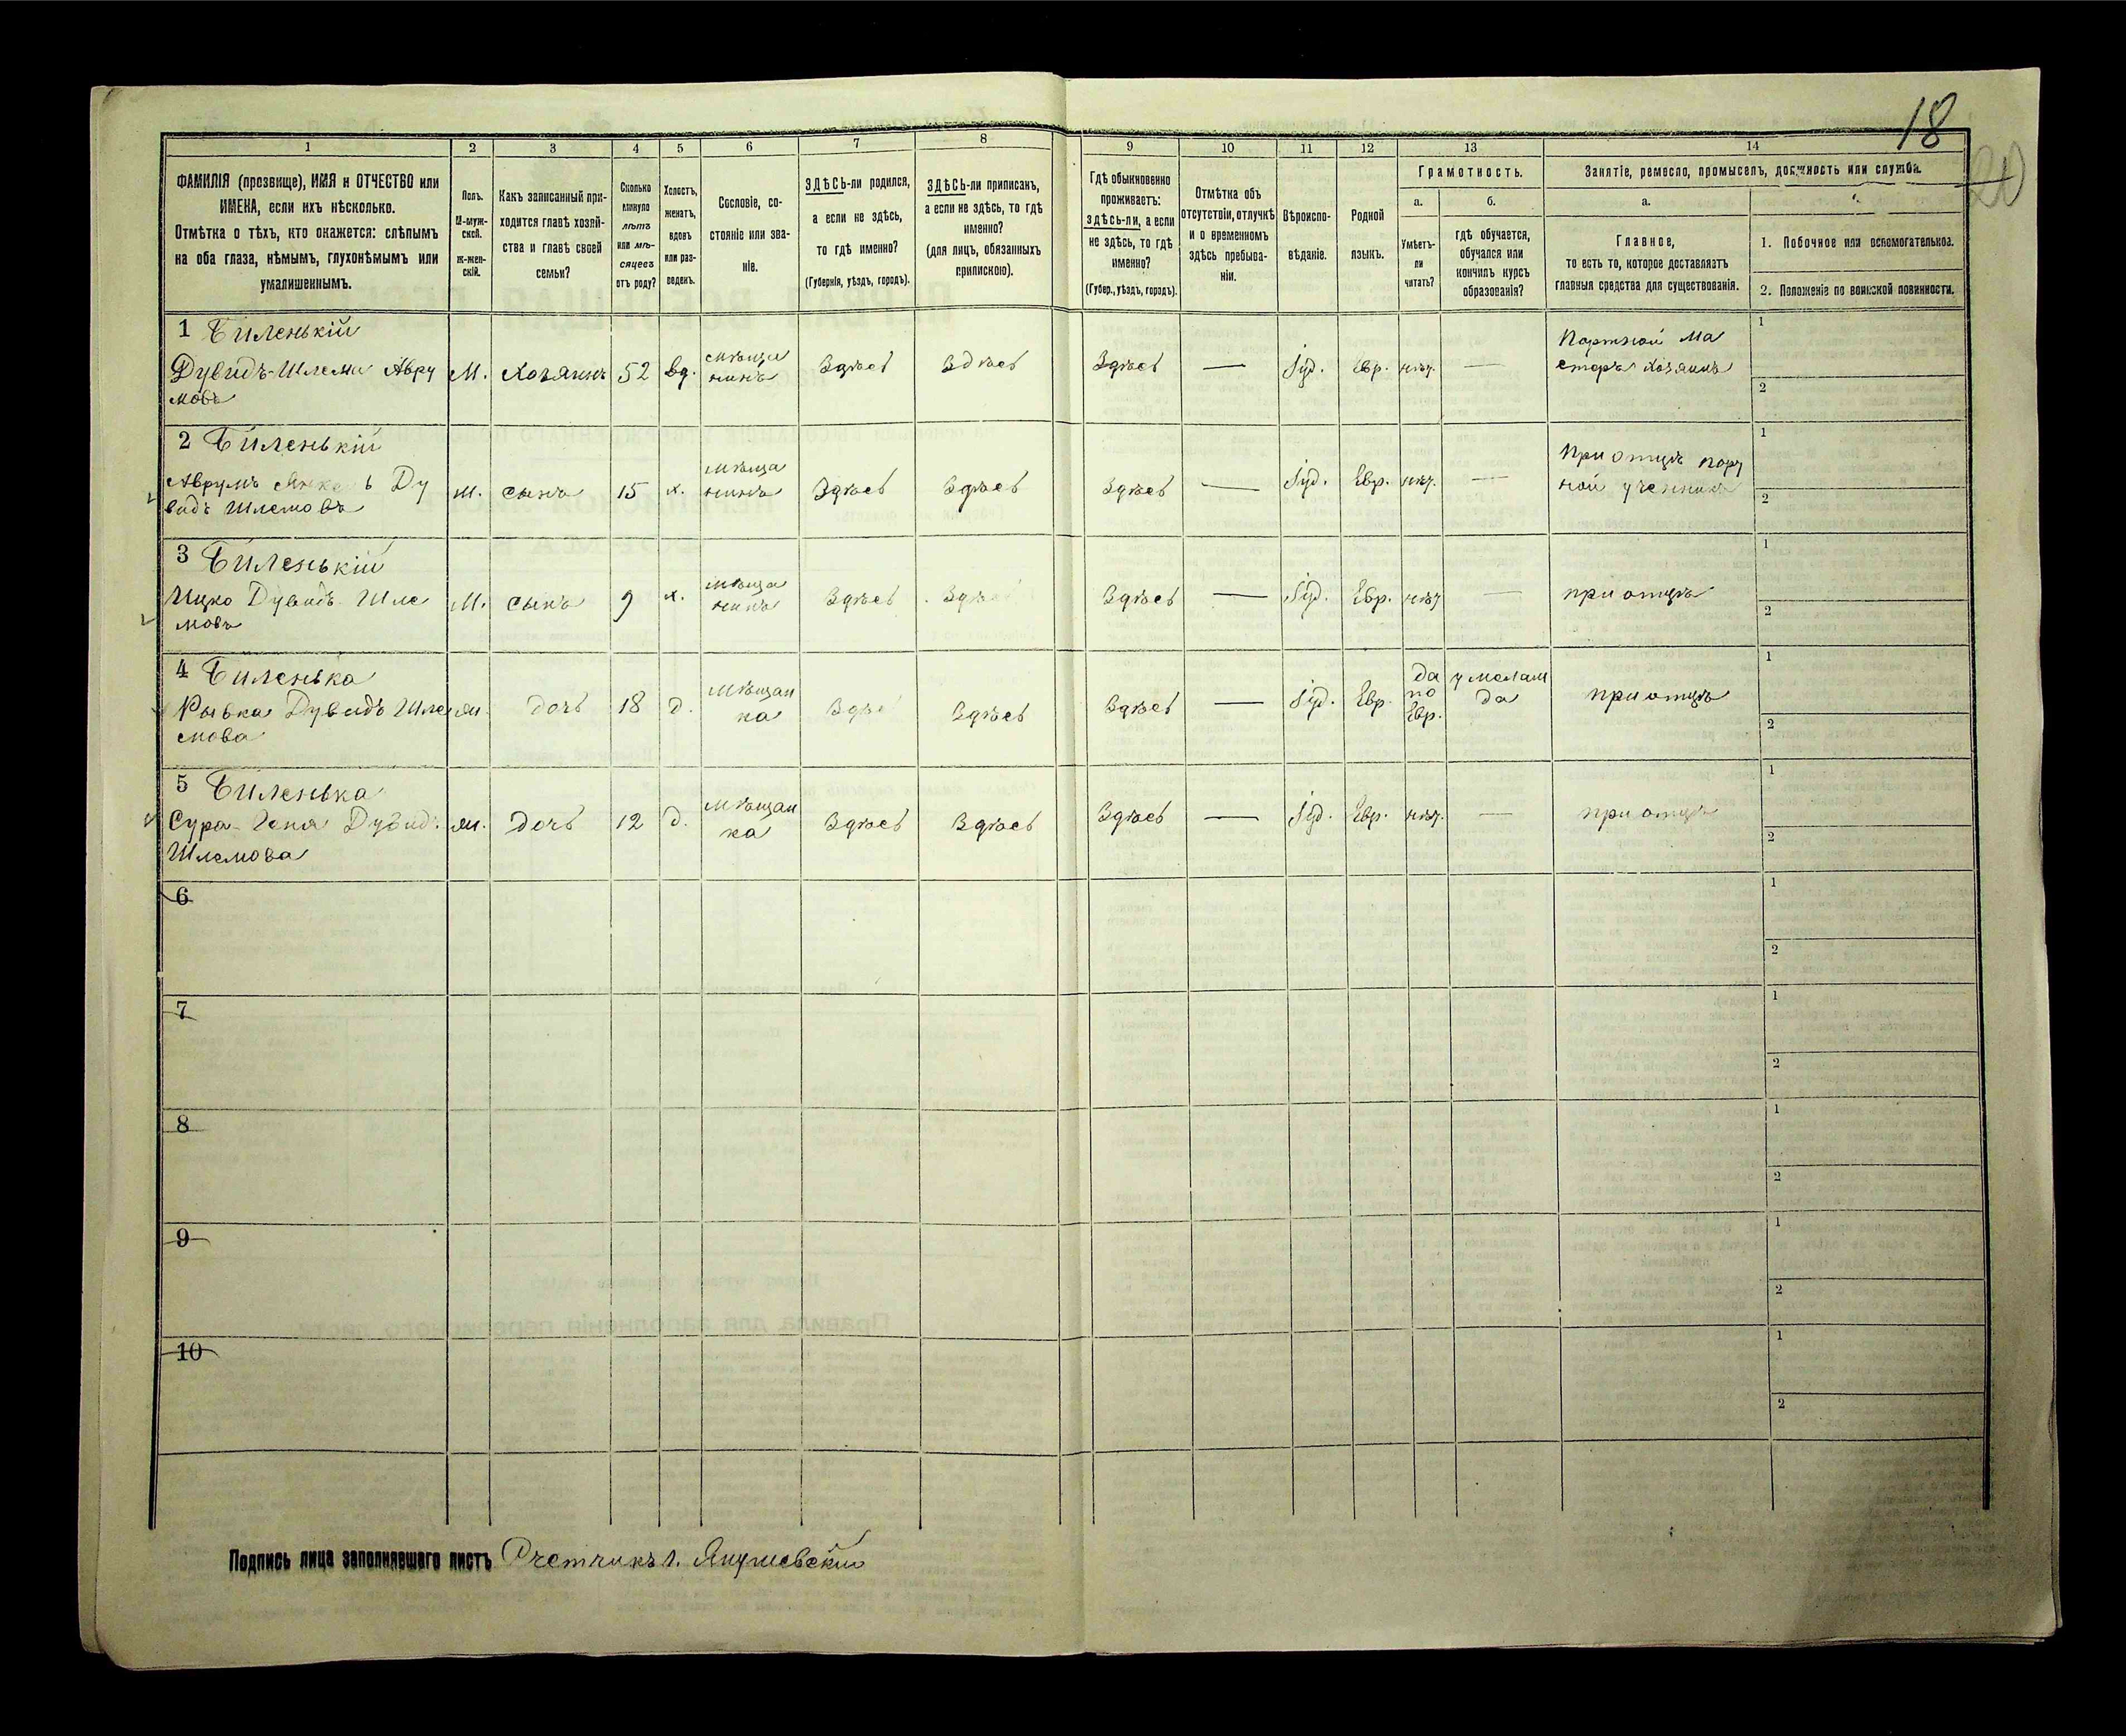 18
20
1
2
3
4
5
6
7
8
9
10
11
12
13
14
ФАМИЛІЯ (прозвище), ИМЯ и ОТЧЕСТВО или
ИМЕНА, если ихъ нѣсколько.
Отмѣтка о тѣхъ, кто окажется: слѣпымъ
на оба глаза, нѣмымъ, глухонѣмымъ или
умалишеннымъ.
Полъ.
М-муж-
ской.
ж-жен-
скій.
Какъ записанный при-
ходится главѣ хозяй-
ства и главѣ своей
семьи?
Сколько
минуло
лѣтъ
или мѣ-
сяцевъ
отъ роду?
Холостъ,
женатъ,
вдовъ
или раз-
веденъ.
Сословіе, со-
стояніе или зва-
ніе.
ЗДѢСЬ-ли родился,
а если не здѣсь,
то гдѣ именно?
(Губернія, уѣздъ, городъ).
ЗДѢСЬ-ли приписанъ,
а если не здѣсь, то гдѣ
именно?
(для лицъ, обязанныхъ
припискою).
Гдѣ обыкновенно
проживаетъ:
здѣсь-ли, а если
не здѣсь, то гдѣ
именно?
(Губер., уѣздъ, городъ).
Отмѣтка объ
отсутствіи, отлучкѣ
и о временномъ
здѣсь пребыва-
ніи.
Вѣроиспо-
вѣданіе.
Родной
языкъ.
Грамотность.
а.
Умѣетъ-
ли
читать?
б.
гдѣ обучается,
обучался или
кончилъ курсъ
образованія?
Занятіе, ремесло, промыселъ, должность или служба.
а.
Главное,
то есть то, которое доставляетъ
главныя средства для существованія.
1. Побочное или вспомогательное.
2. Положеніе по воинской повинности.
1 Биленькій
Дувидъ-Шлема Авру
мовъ
М.
Хозяинъ
52
вд.
мѣща
нинъ
Здѣсь
Здѣсь
Здѣсь
—
Іуд.
Евр.
нѣт.
—
Портной ма
стеръ хозяинъ
1
2
2 Биленькій
Аврумъ Ду
видъ Шлемовъ
м.
сынъ
15
х.
мѣща
нинъ
Здѣсь
Здѣсь
Здѣсь
—
Іуд.
Евр.
нѣт.
—
При отцѣ порт
ной ученикъ
1
2
3 Биленькій
Ицко Дувидъ Шле
мовъ
М.
сынъ
9
х.
мѣща
нинъ
Здѣсь
Здѣсь
Здѣсь
—
Іуд.
Евр.
нѣт
—
при отцѣ
1
2
4 Биленька
Рывка Дувидъ Шле
мова
ж.
дочь
18
д.
мѣщан
ка
Здѣсь
Здѣсь
Здѣсь
—
Іуд.
Евр.
да
по
Евр.
у мелам
да
при отцѣ
1
2
5 Биленька
Сура- Дувидъ
Шлемова
ж.
дочь
12
д.
мѣщан
ка
Здѣсь
Здѣсь
Здѣсь
—
Іуд.
Евр.
нѣт.
—
при отцѣ
1
2
6
1
2
7
1
2
8
1
2
9
1
2
10
1
2
Подпись лица заполнявшаго листъ Счетчикъ Янушевскій